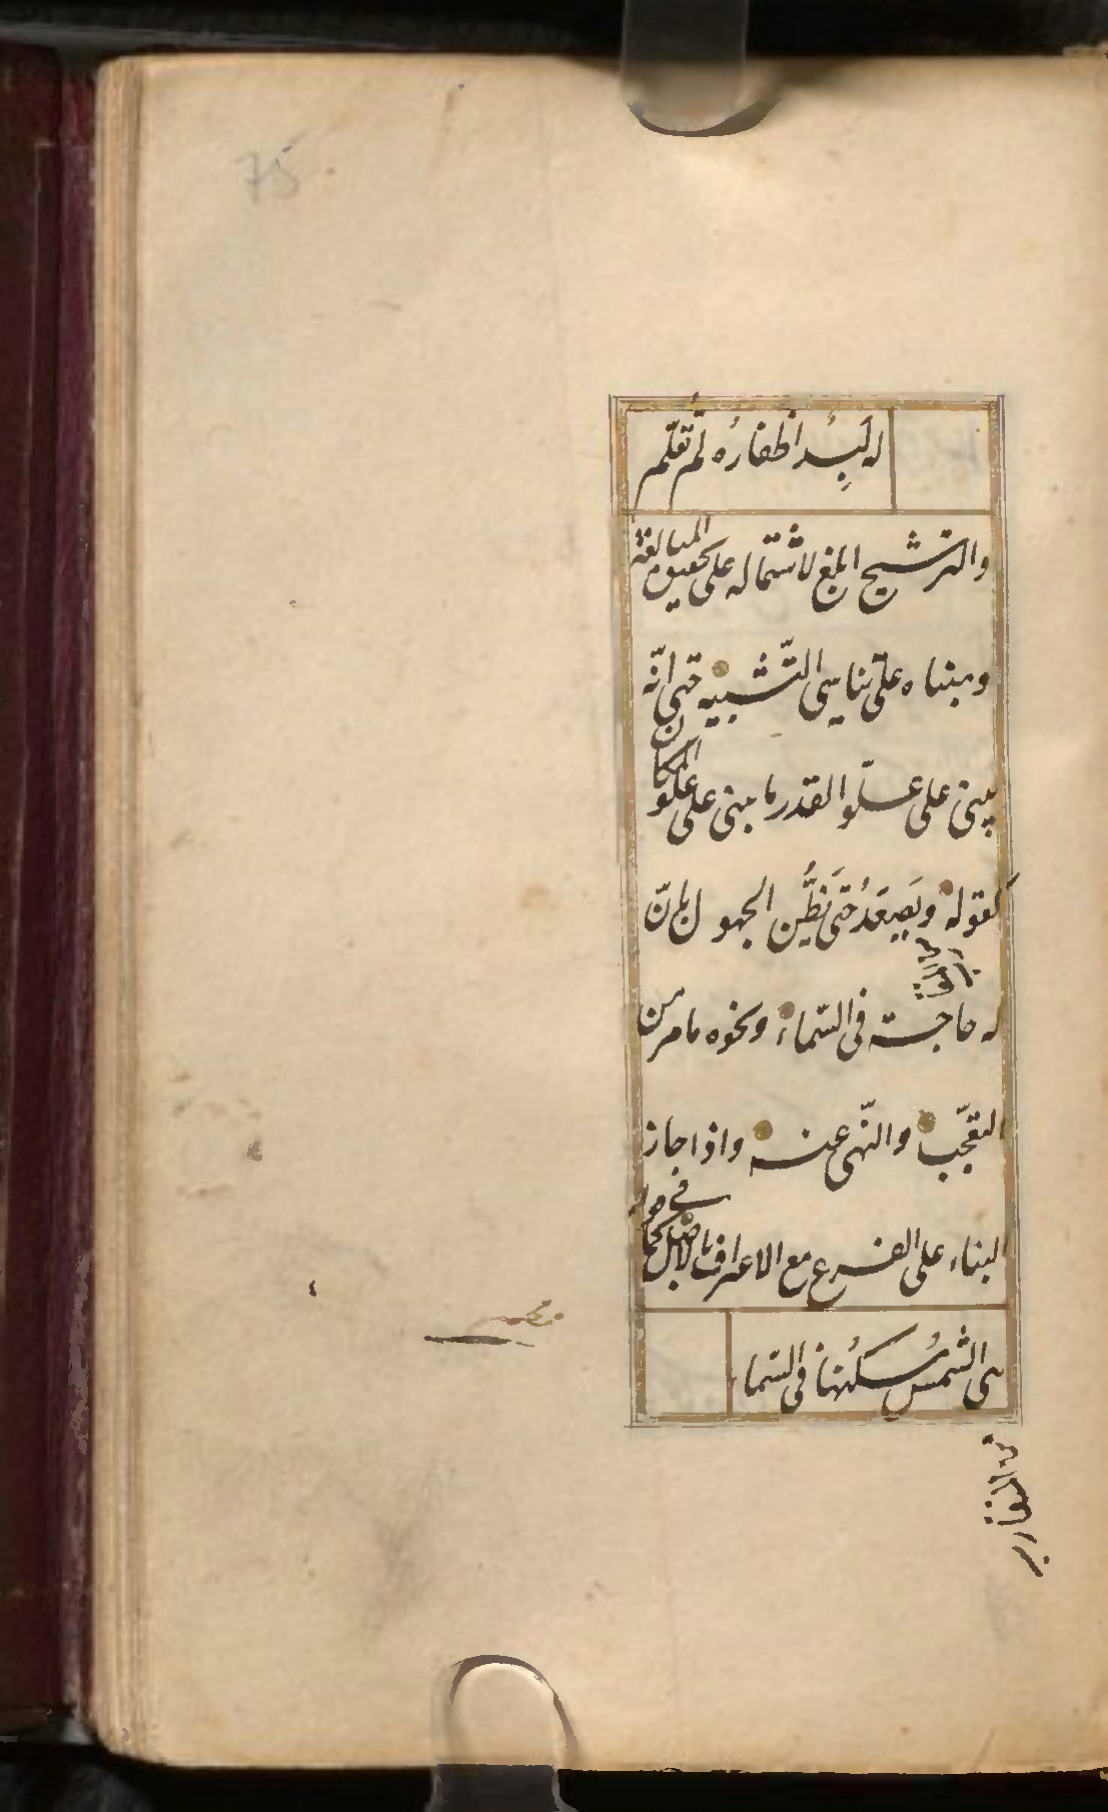 له لِبَدٌ اظفارُه لَم تُقلّم
والترشيح ابلغ لاشتماله على تحقيق المبالغة
ومبناه على تناسى التّشبيه حتى انّه
يبنى على علوّ القدر ما يبنى على علو المكان
كقوله ويَصعَدُ حتى يَظُنَّ الجهول بانّ
له حاجة فى السّماء ونحوه ما مر من
التعجّب والنّهى عنه واذا جاز
البناء على الفرع مع الاعتراف بالاصل كما فى قوله
هى الشمس مسكنُها فى السّماء